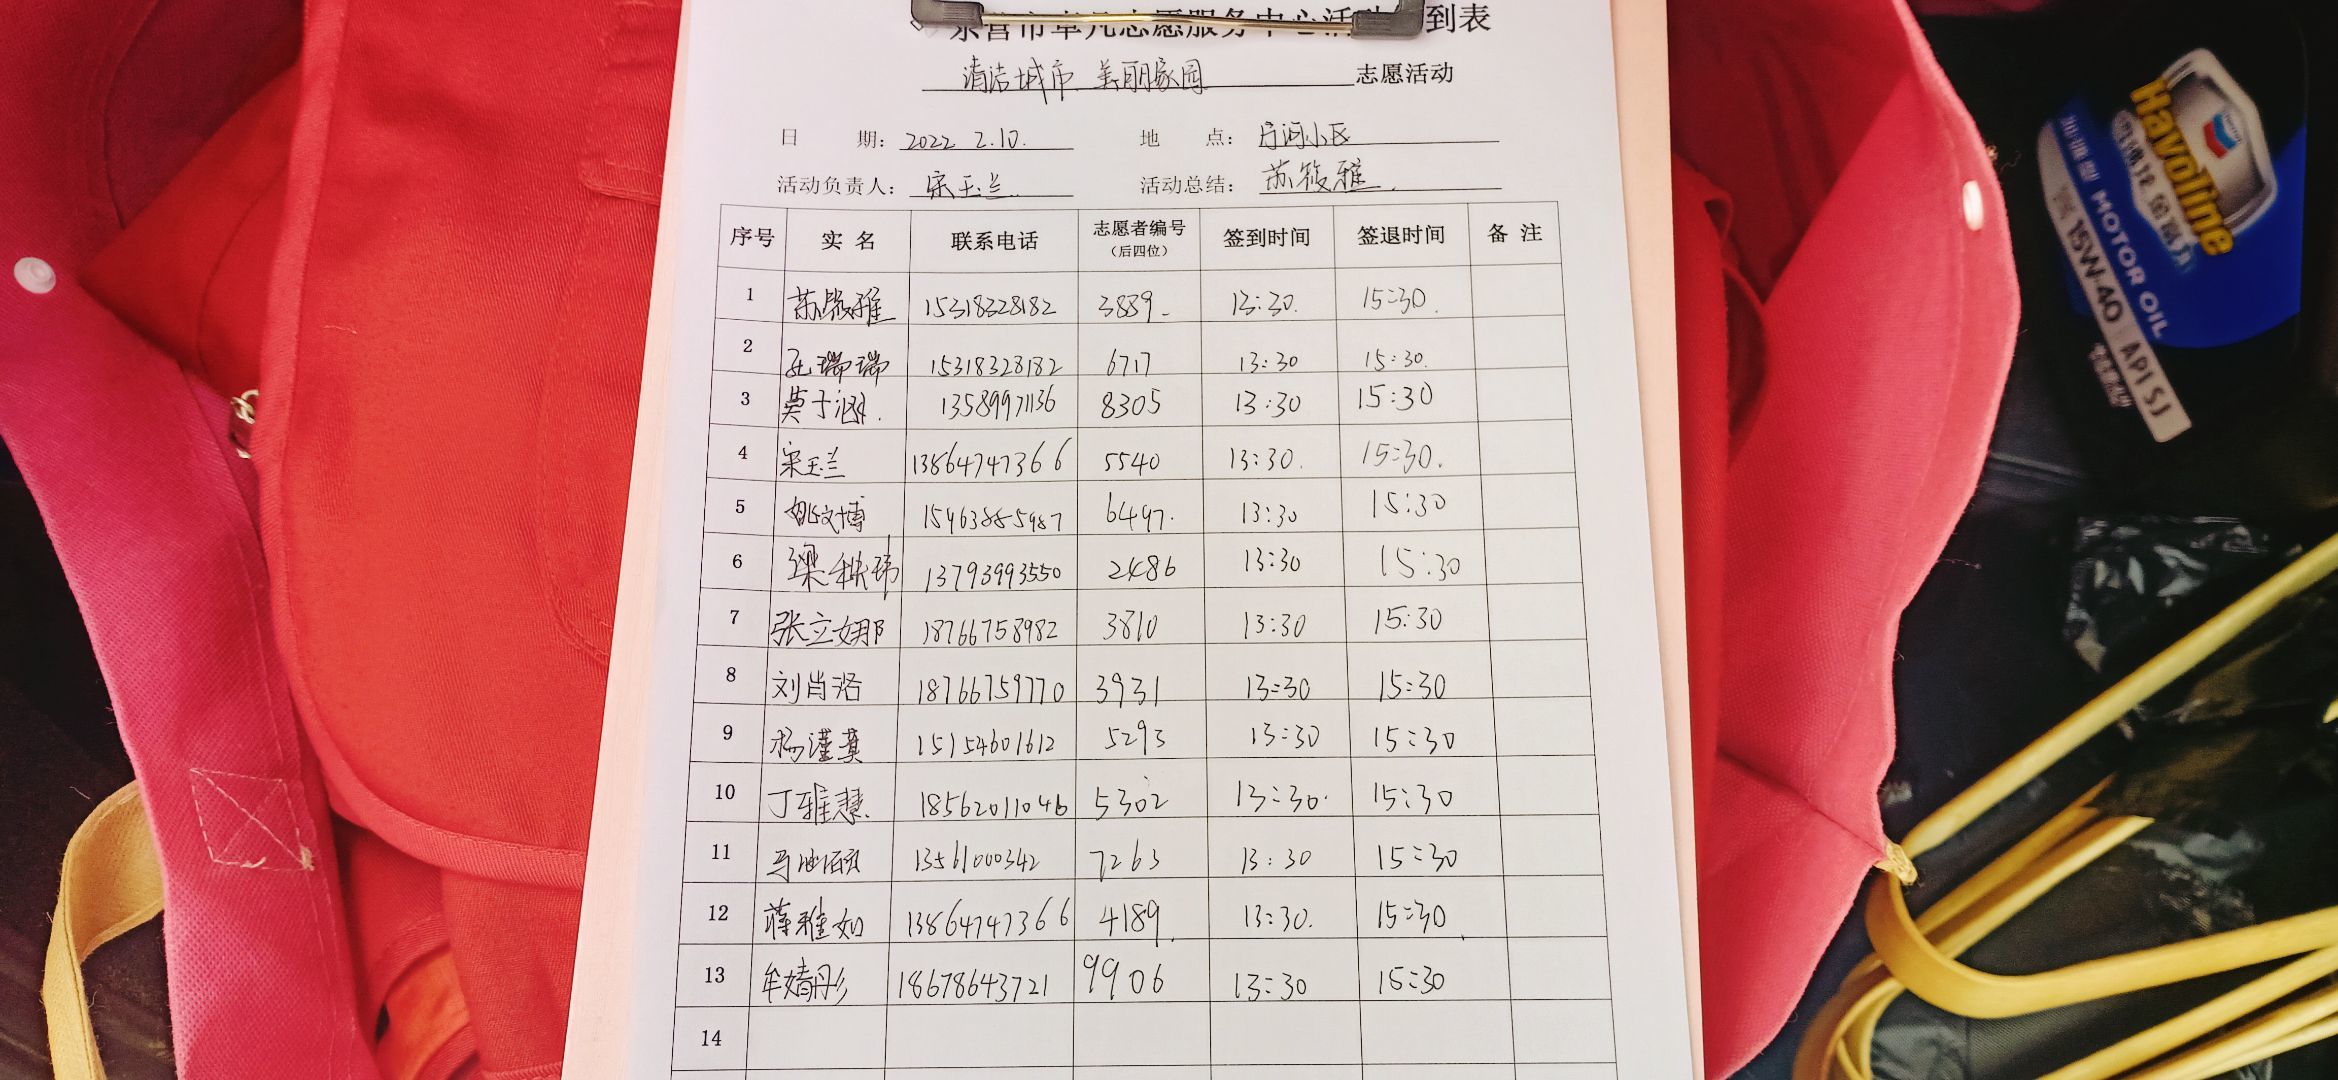 东营市卓凡志愿服务中心活动签到表
清洁城市 美丽家园 志愿活动
日 期: 2022 2.10. 地 点: 府河小区
活动负责人: 宋玉兰. 活动总结: 苏筱雅.
序号 实名 联系电话 志愿者编号 (后四位) 签到时间 签退时间 备注
1 苏筱雅 15318328182 3889 13:30. 15:30.
2 孟瑞瑞 15318328182 6717 13:30 15:30.
3 莫子涵. 13589971136 8305 13:30 15:30
4 宋玉兰 13864747366 5540 13:30. 15:30.
5 姚文博 15463885987 6497. 13:30 15:30
6 梁秩玮 13793993550 2486 13:30 15:30
7 张立娜 18766758982 3810 13:30 15:30
8 刘肖洛 18766759770 3931 13:30 15:30
9 杨谨萁 15154601612 5293 13:30 15:30
10 丁雅慧. 18562011046 5302 13:30. 15:30
11 13561000342 7263 13:30 15:30
12 蒋雅如 13864747366 4189. 13:30. 15:30.
13 牟婧彤 18678643721 9906 13:30 15:30
14
Havoline
20-坦型 MOTOR OIL
15W-40 API SJ